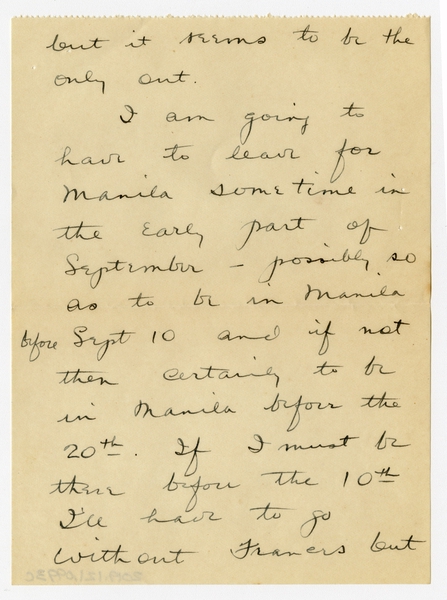 but it seems to be the
only out.
I am going to
have to leave for
Manila sometime in
the early part of
September – possibly so
as to be in Manila
before Sept 10 and if not
then certainly to be
in Manila before the
20th. If I must be
there before the 10th
I'll have to go
without Frances but